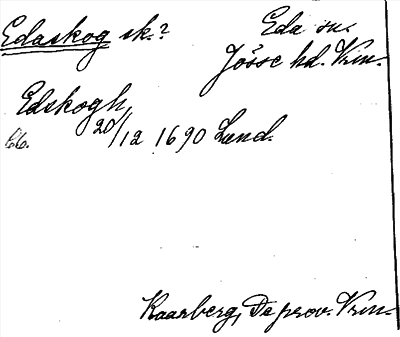 Edaskog sk.? Eda sn.
Jösse hd. Vrm.
Edskogh,
66. 20/12 1690 Lund.
Kaarberg, De prov. Vrm.